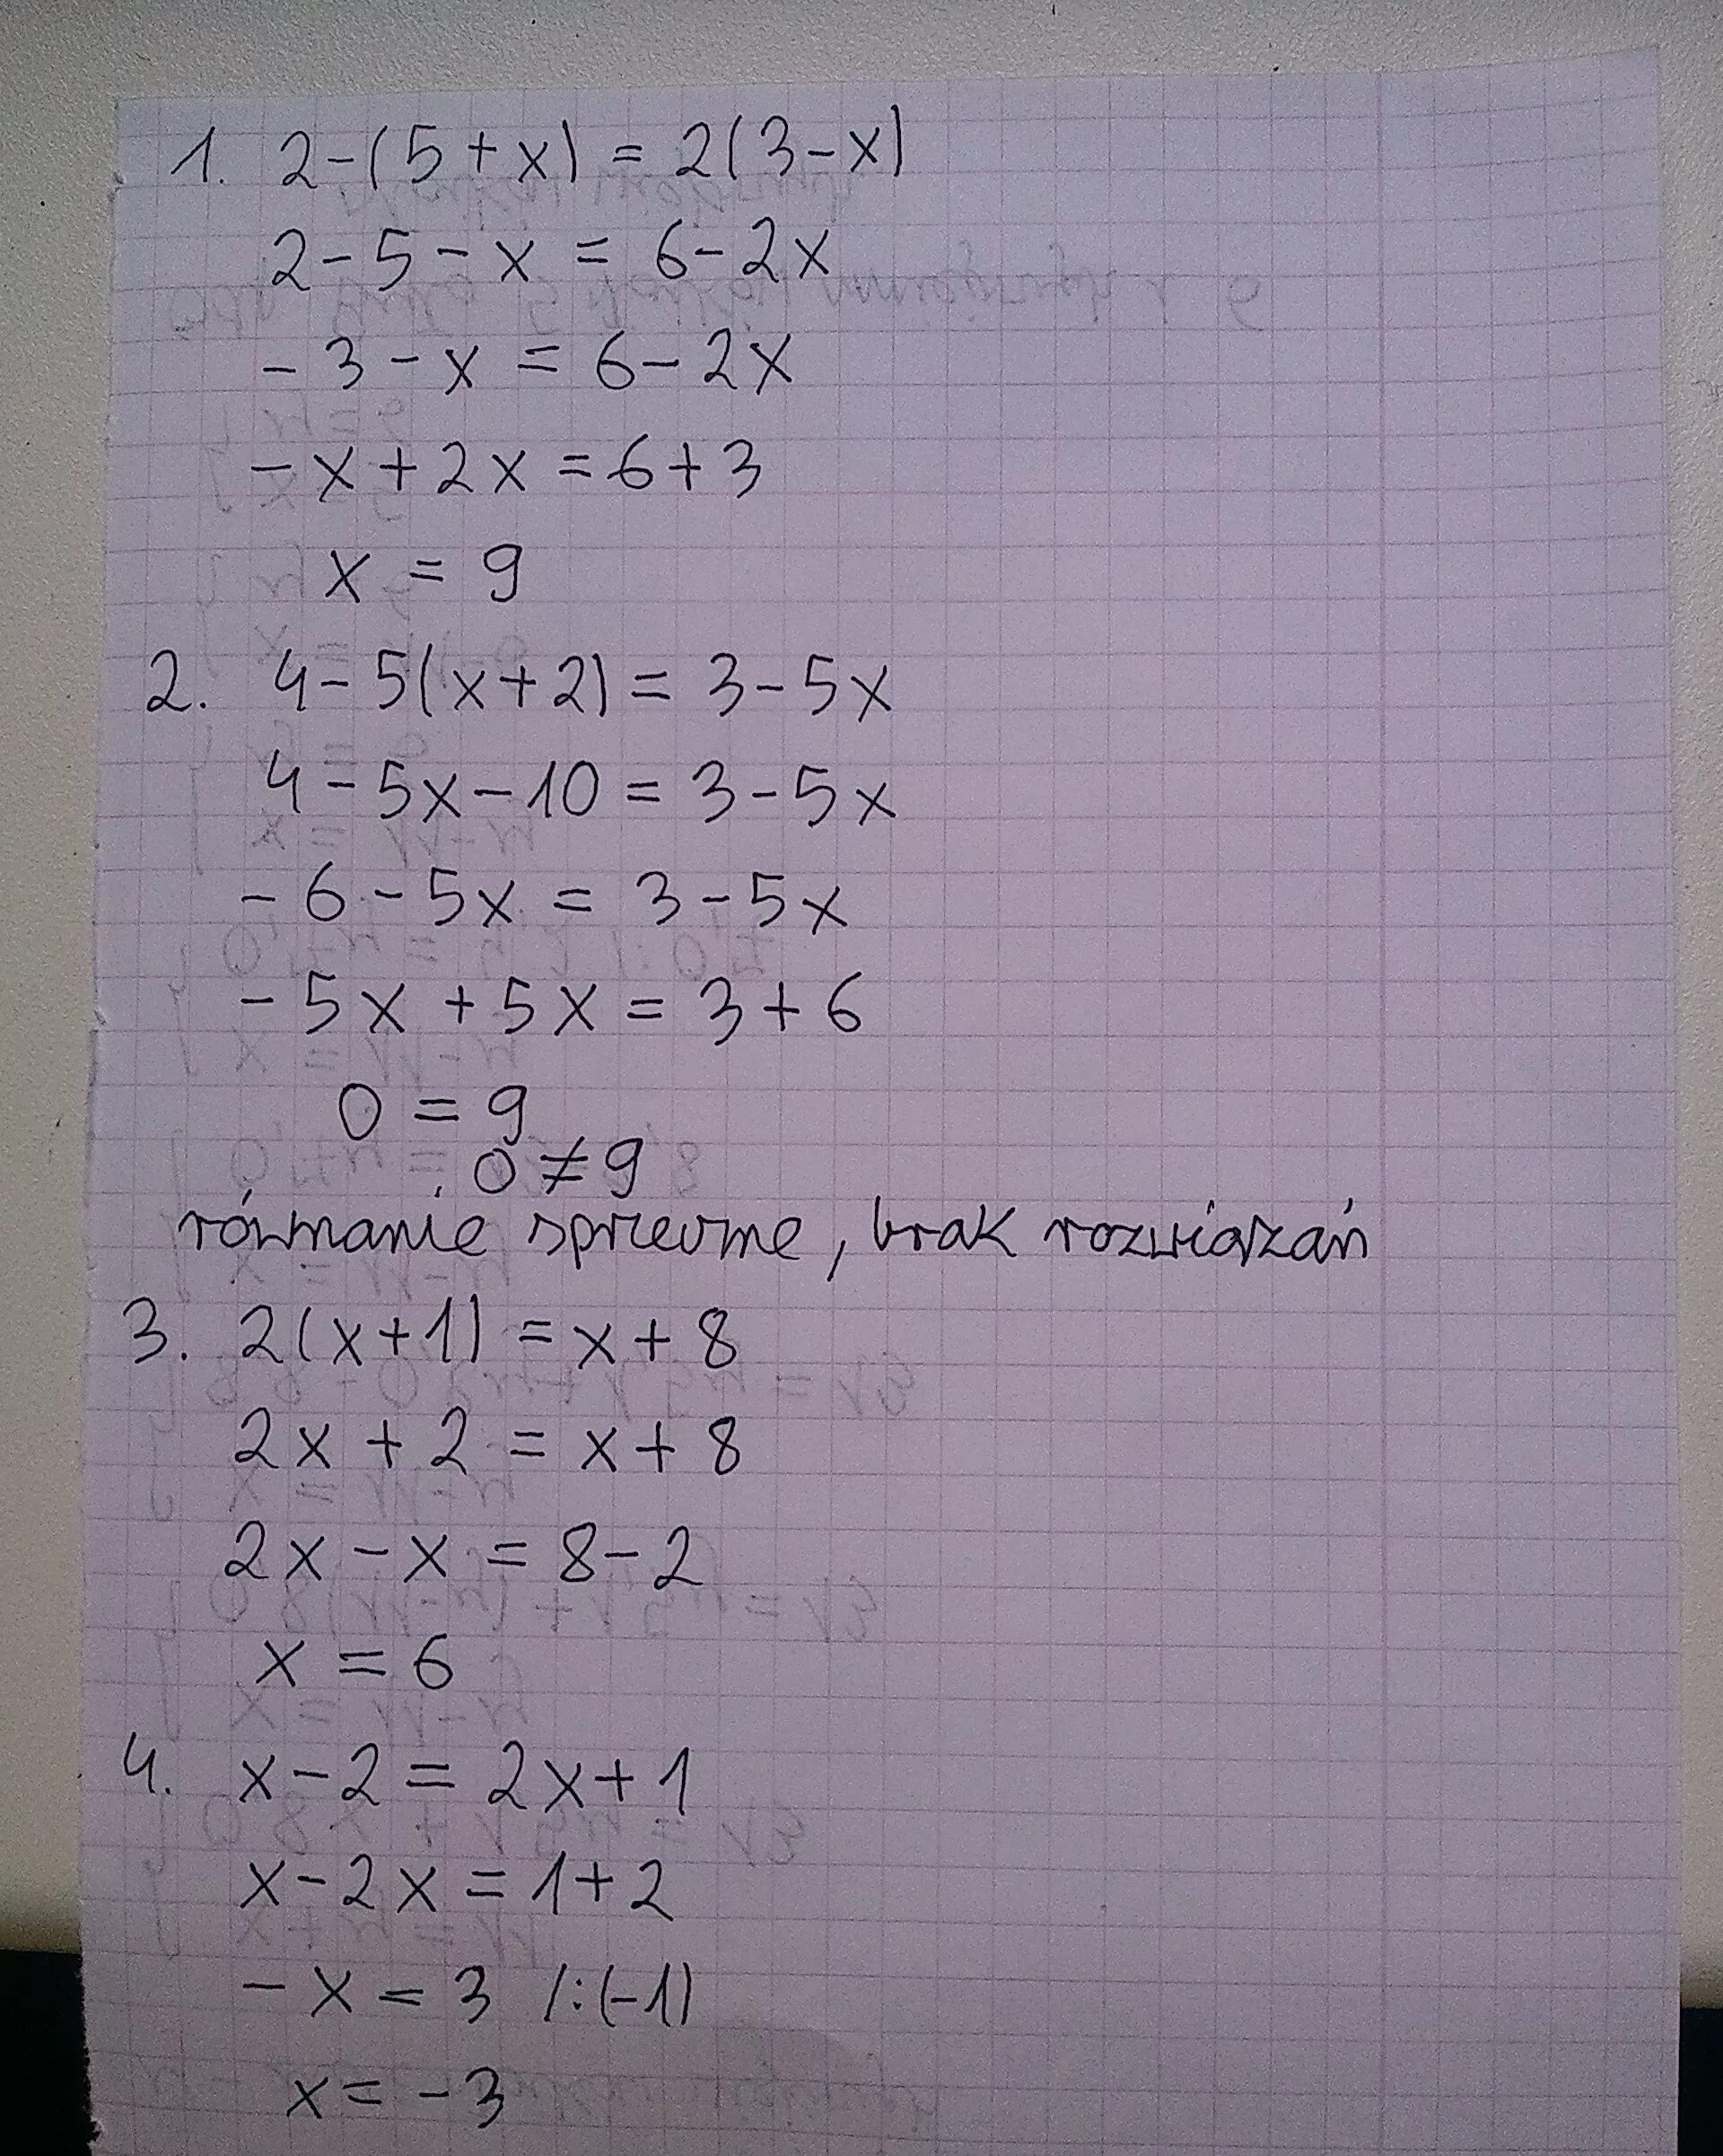 1. 2-(5+x) = 2(3-x)
2-5-x = 6-2x
-3-x = 6-2x
-x+2x = 6+3
x = 9
2. 4-5(x+2) = 3-5x
4-5x-10 = 3-5x
-6-5x = 3-5x
-5x+5x = 3+6
0 = 9
0 ≠ 9
równanie sprzeczne, brak rozwiązań
3. 2(x+1) = x+8
2x+2 = x+8
2x-x = 8-2
x = 6
4. x-2 = 2x+1
x-2x = 1+2
-x = 3 /:(-1)
x = -3